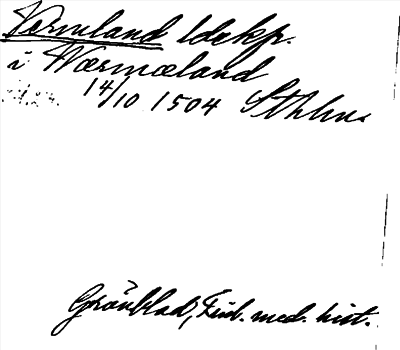 Vermland ldskp.
i Wærmæland
14/10 1504 Sthlm.
Grönblad, Finl. med. hist.